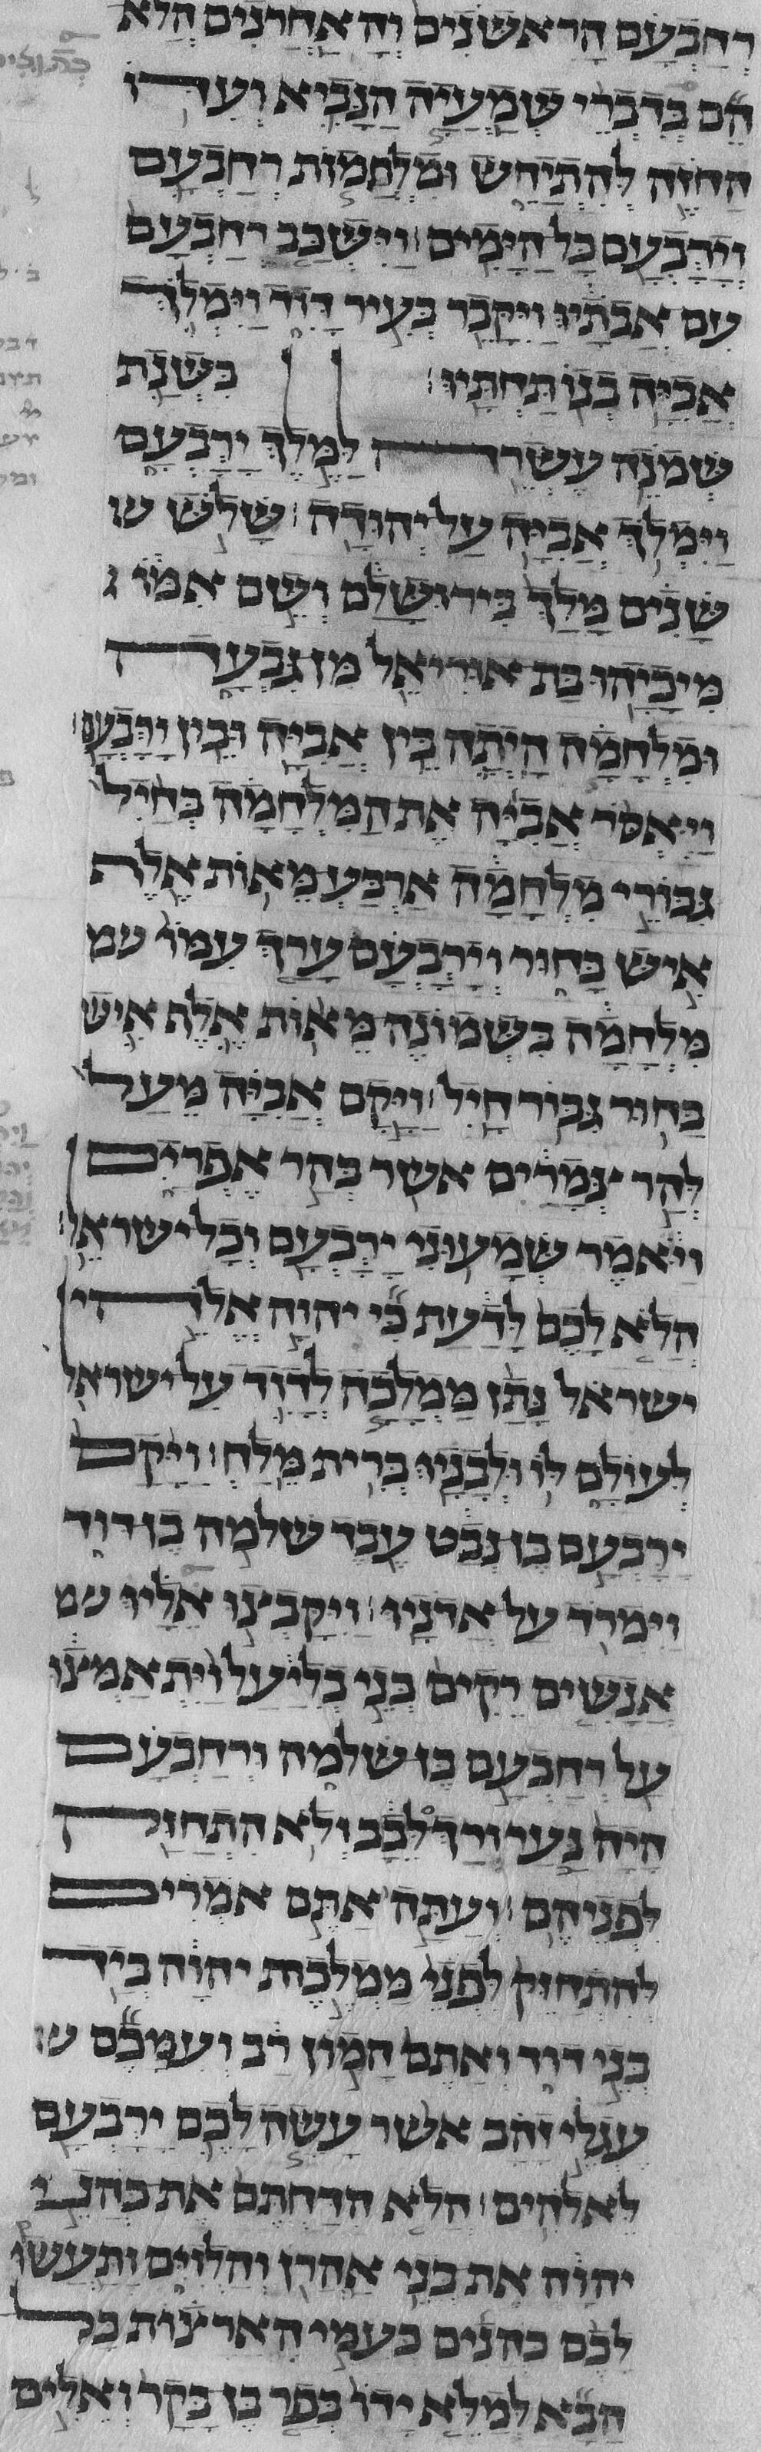 רחבעם הראשנים והאחרנים הלא
הם בדברי שמעיה הנביא ועדו
החזה להתיחש ומלחמות רחבעם
וירבעם כל הימים׃ וישכב רחבעם
עם אבתיו ויקבר בעיר דויד וימלך
אביה בנו תחתיו׃ בשנת
שמנה עשרה למלך ירבעם
וימלך אביה על יהודה׃ שלש ש
שנים מלך בירושלם ושם אמו
מיכיהו בת אוריאל מן גבעה
ומלחמה היתה בין אביה ובין ירבעם׃
ויאסר אביה את המלחמה בחיל
גבורי מלחמה ארבע מאות אלף
איש בחור וירבעם ערך עמו עמ
מלחמה בשמונה מאות אלף איש
בחור גבור חיל׃ ויקם אביה מעל
להר צמרים אשר בהר אפרים
ויאמר שמעוני ירבעם וכל ישראל׃
הלא לכם לדעת כי יהוה אלהי
ישראל נתן ממלכה לדויד על ישראל
לעולם לו ולבניו ברית מלח׃ ויקם
ירבעם בן נבט עבד שלמה בן דויד
וימרד על אדניו׃ ויקבצו אליו עמ
אנשים רקים בני בליעל ויתאמצו
על רחבעם בן שלמה ורחבעם
היה נער ורך לבב ולא התחזק
לפניהם׃ ועתה אתם אמרים
להתחזק לפני ממלכת יהוה ביד
בני דויד ואתם המון רב ועמכם ע
עגלי זהב אשר עשה לכם ירבעם
לאלהים׃ הלא הדחתם את כהני
יהוה את בני אהרן והלוים ותעשו
לכם כהנים כעמי הארצות כל
הבא למלא ידו בפר בן בקר ואלים